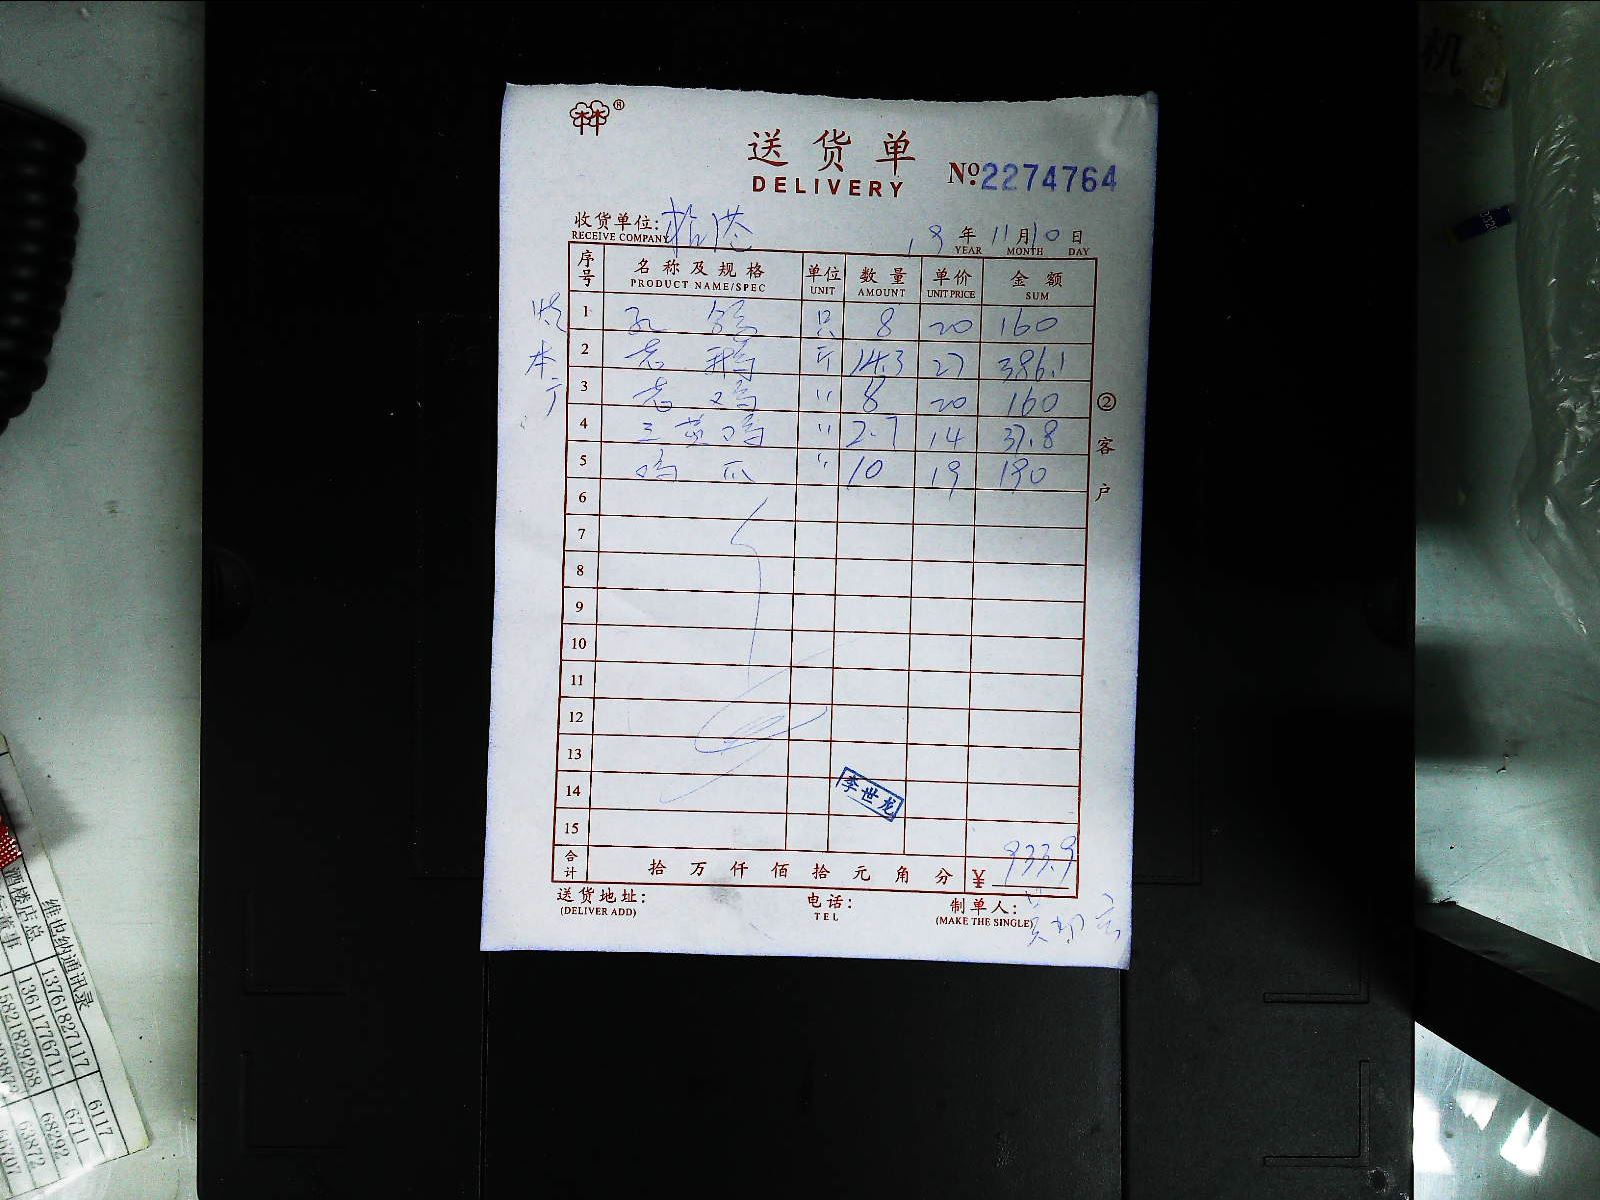 送货单
DELIVERY
No.2274764
收货单位:
RECEIVE COMPANY
19年11月10日
YEAR MONTH DAY
序号 名称及规格 单位 数量 单价 金额
PRODUCT NAME/SPEC UNIT AMOUNT UNIT PRICE SUM
1 乳鸽 只 8 20 160
2 老鹅 斤 14.3 27 386.1
3 老鸡 〃 8 20 160
4 三黄鸡 〃 2.7 14 37.8
5 鸡爪 〃 10 19 190
6
7
8
9
10
11
12
13
14
15
李世龙
合计 拾万仟佰拾元角分 ¥ 933.9
送货地址:
(DELIVER ADD)
电话:
TEL
制单人:
(MAKE THE SINGLE)
②客户
机
维也纳通讯录
酒楼店总
13761827117 6117
13611776711 6711
15821829268 68292
63872